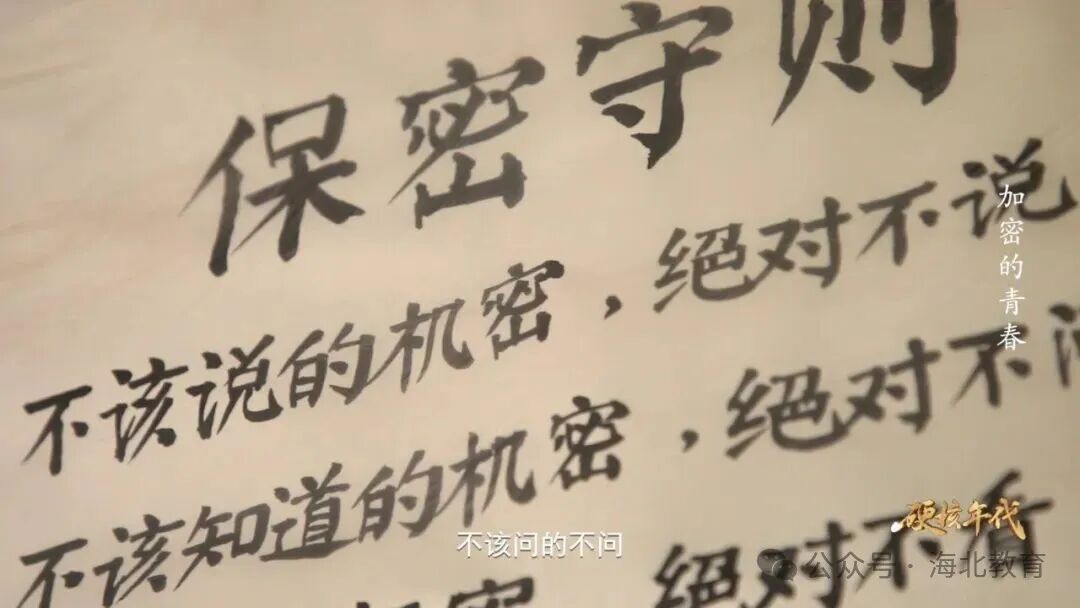 保密守则
不该说的机密，绝对不说
不该知道的机密，绝对不问
机密，绝对不看
加密的青春
硬核年代
不该问的不问
公众号·海北教育